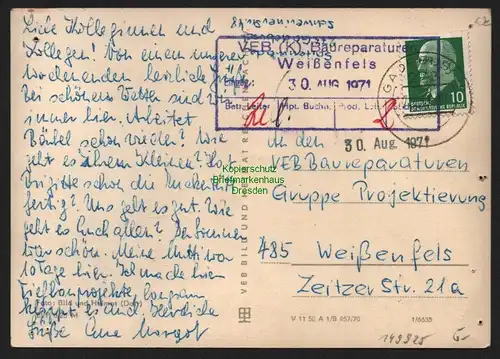 Liebe Kolleginnen und
Kollegen! Von einem unserer
Wochenenden herzliche Grüße
Bei schönem Wetter sind wir
immer hier. Arbeitet
Bärbel schon wieder? Wie
geht es ihrem Kleinen? Hat
Brigitte schon die
fertig? Uns geht es gut. Wie
geht es Euch allen? Der Sommer
war schön. Meine Mutti war
10 Tage hier. Ich mache hier
langsam
klappt es auch. Herzliche
Grüße Eure Margot
Foto: Bild und Heimat
VEB (K) Baureparaturen
Weißenfels
30. AUG 1971
Betr.-Leiter Hpt. Buchh. Prod. L.
10
30. Aug 1971
An den
VEB Baureparaturen
Gruppe Projektierung
485 Weißenfels
Zeitzer Str. 21a
Kopierschutz
Briefmarkenhaus
Dresden
VEB BILD UND HEIMAT REICHENBACH
V 11 50 A 1/B 457/70
1/6635
149925